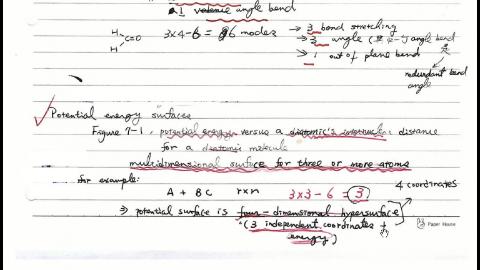 1 valence angle bend
H
H C=O 3x4-6 = 6 modes → 3 bond stretching
→ 3 angle ( -1) angle bend
→ 1 out of plane bend
redundant bend
angle
Potential energy surfaces
Figure 7-1. potential energy versus a diatomic's internuclear distance
for a diatomic molecule
multidimensional surface for three or more atoms
for example:
A + BC rxn 3x3-6 = 3 4 coordinates
⇒ potential surface is four-dimensional hypersurface
(3 independent coordinates +
energy)
Paper House